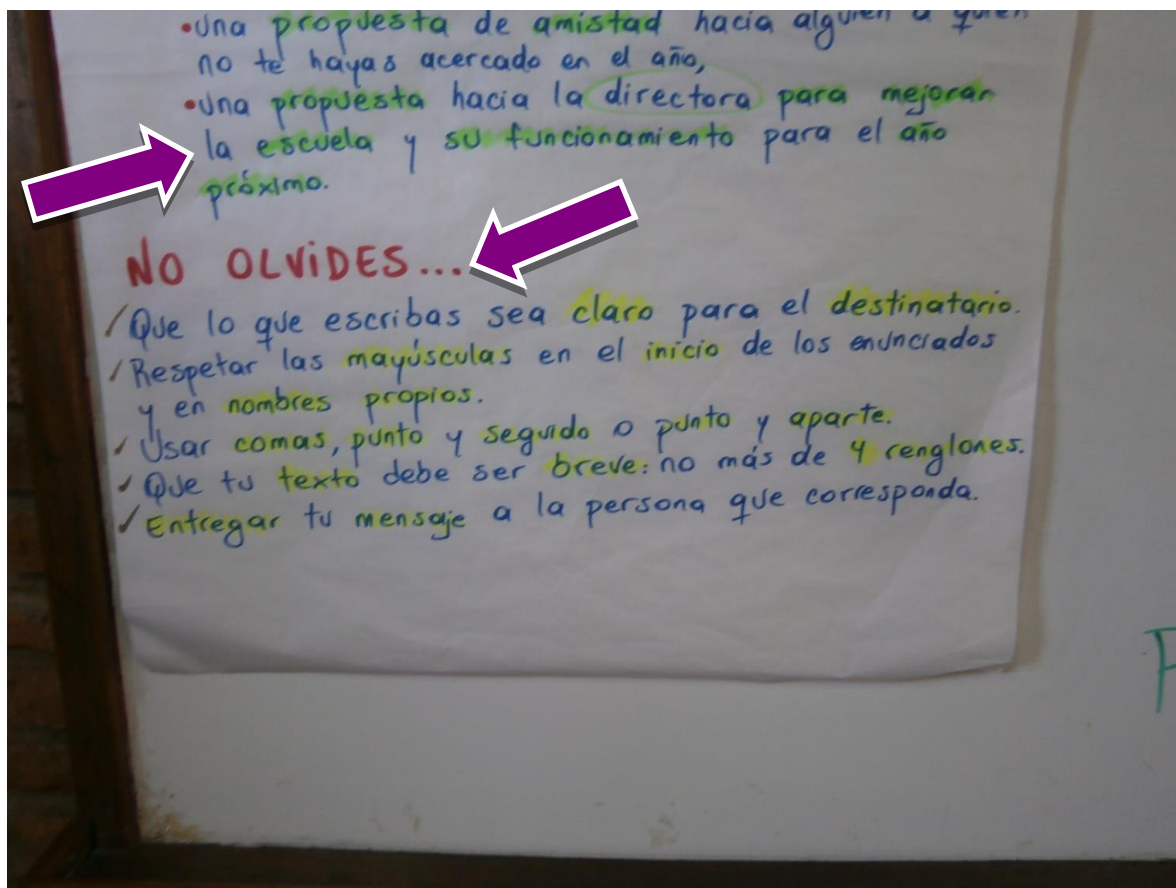 •Una propuesta de amistad hacia alguien a quien
no te hayas acercado en el año,
•Una propuesta hacia la directora para mejorar
la escuela y su funcionamiento para el año
próximo.
NO OLVIDES...
✓Que lo que escribas sea claro para el destinatario.
✓Respetar las mayúsculas en el inicio de los enunciados
y en nombres propios.
✓Usar comas, punto y seguido o punto y aparte.
✓Que tu texto debe ser breve: no más de 4 renglones.
✓Entregar tu mensaje a la persona que corresponda.